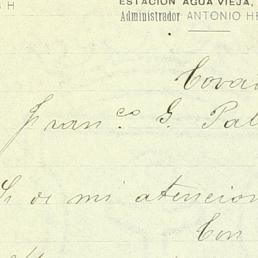 ESTACION AGUA VIEJA,
Administrador ANTONIO HE
Covad
Fran.co G. Pal
Sr de mi atencion
Con